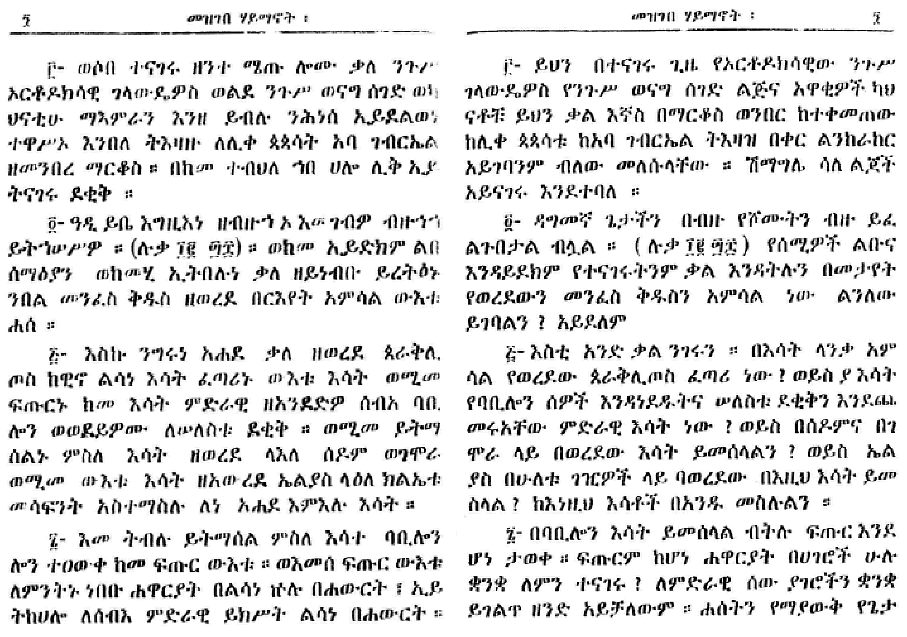 ፯ መዝገበ ሃይማኖት ፡
፫- ወሶበ ተናገሩ ዘንተ ሜጡ ሎሙ ቃለ ንጉሥ
ኦርቶዶክሳዊ ገላውዴዎስ ወልደ ንጉሥ ወናግ ሰገድ
ህናቲሁ ማእምራን እንዘ ይብሉ ንሕነሰ ኢይደልወነ
ተዋሥኦ እንበለ ትእዛዙ ለሊቀ ጳጳሳት አባ ገብርኤል
ዘመንበረ ማርቆስ ። በከመ ተብህለ ኀበ ሀሎ ሊቅ ኢይ
ትናገሩ ደቂቅ ።
፬- ዓዲ ይቤ እግዚእነ ዘብዙኀ አእመገብዎ ብዙኀ
ይትኀሠሥዎ ። (ሉቃ ፲፪ ፵፰) ። ወከመ ኢይድክም ልበ
ሰማዕያን ወከመሂ ኢትበሉነ ቃለ ዘይነብቡ ይረትዕኑ
ንበል መንፈስ ቅዱስ ዘወረደ በርእየት አምሳል ውእቱ
ሐሰ ።
፭- እስኩ ንግሩነ አሐደ ቃለ ዘወረደ ጰራቅሊ
ጦስ ከዊኖ ልሳነ እሳት ፈጣሪኑ ውእቱ እሳት ወሚመ
ፍጡርኑ ከመ እሳት ምድራዊ ዘአንደድዎ ሰብአ ባቢ
ሎን ወወደይዎሙ ለሠለስቱ ደቂቅ ። ወሚመ ይትማ
ሰልኑ ምስለ እሳት ዘወረደ ላእለ ሰዶም ወገሞራ
ወሚመ ውእቱ እሳት ዘአውረደ ኤልያስ ላዕለ ክልኤቱ
መሳፍንት አስተማስሉ ለነ አሐደ እምእሉ እሳት ።
፮- እመ ትብሉ ይትማሰል ምስለ እሳተ ባቢሎን
ሎን ተዐውቀ ከመ ፍጡር ውእቱ ። ወእመሰ ፍጡር ውእቱ
ለምንትኑ ነበቡ ሐዋርያት በልሳነ ኵሉ በሐውርት ፣ ኢይ
ትከሀሎ ለሰብእ ምድራዊ ይክሥት ልሳነ በሐውርት ።
መዝገበ ሃይማኖት ፡ ፯
፫- ይህን በተናገሩ ጊዜ የኦርቶዶክሳዊው ንጉሥ
ገላውዴዎስ የንጉሥ ወናግ ሰገድ ልጅና አዋቂዎች ካህ
ናቶቹ ይህን ቃል እኛስ በማርቆስ ወንበር ከተቀመጠው
ከሊቀ ጳጳሳቱ ከአባ ገብርኤል ትእዛዝ በቀር ልንከራከር
አይገባንም ብለው መለሱላቸው ። ሽማግሌ ሳለ ልጆች
አይናገሩ እንደተባለ ።
፬- ዳግመኛ ጌታችን በብዙ የሾሙትን ብዙ ይፈ
ልጉበታል ብሏል ። ( ሉቃ ፲፪ ፵፰ ) የሰሚዎች ልቡና
እንዳይደክም የተናገሩትንም ቃል እንዳትሉን በመታየት
የወረደውን መንፈስ ቅዱስን አምሳል ነው ልንለው
ይገባልን ? አይደለም
፭- እስቲ አንድ ቃል ንገሩን ። በእሳት ላንቃ አም
ሳል የወረደው ጰራቅሊጦስ ፈጣሪ ነው ? ወይስ ያ እሳት
የባቢሎን ሰዎች እንዳነደዱትና ሠለስቱ ደቂቅን እንደጨ
መሩአቸው ምድራዊ እሳት ነው ? ወይስ በሰዶምና በገ
ሞራ ላይ በወረደው እሳት ይመሰላልን ? ወይስ ኤል
ያስ በሁለቱ ገዢዎች ላይ ባወረደው በእዚህ እሳት ይመ
ስላል ? ከእነዚህ እሳቶች በአንዱ መስሉልን ።
፮- በባቢሎን እሳት ይመሰላል ብትሉ ፍጡር እንደ
ሆነ ታወቀ ። ፍጡርም ከሆነ ሐዋርያት በሀገሮች ሁሉ
ቋንቋ ለምን ተናገሩ ? ለምድራዊ ሰው ያገሮችን ቋንቋ
ይገልጥ ዘንድ አይቻለውም ። ሐሰትን የማያውቅ የጌታ